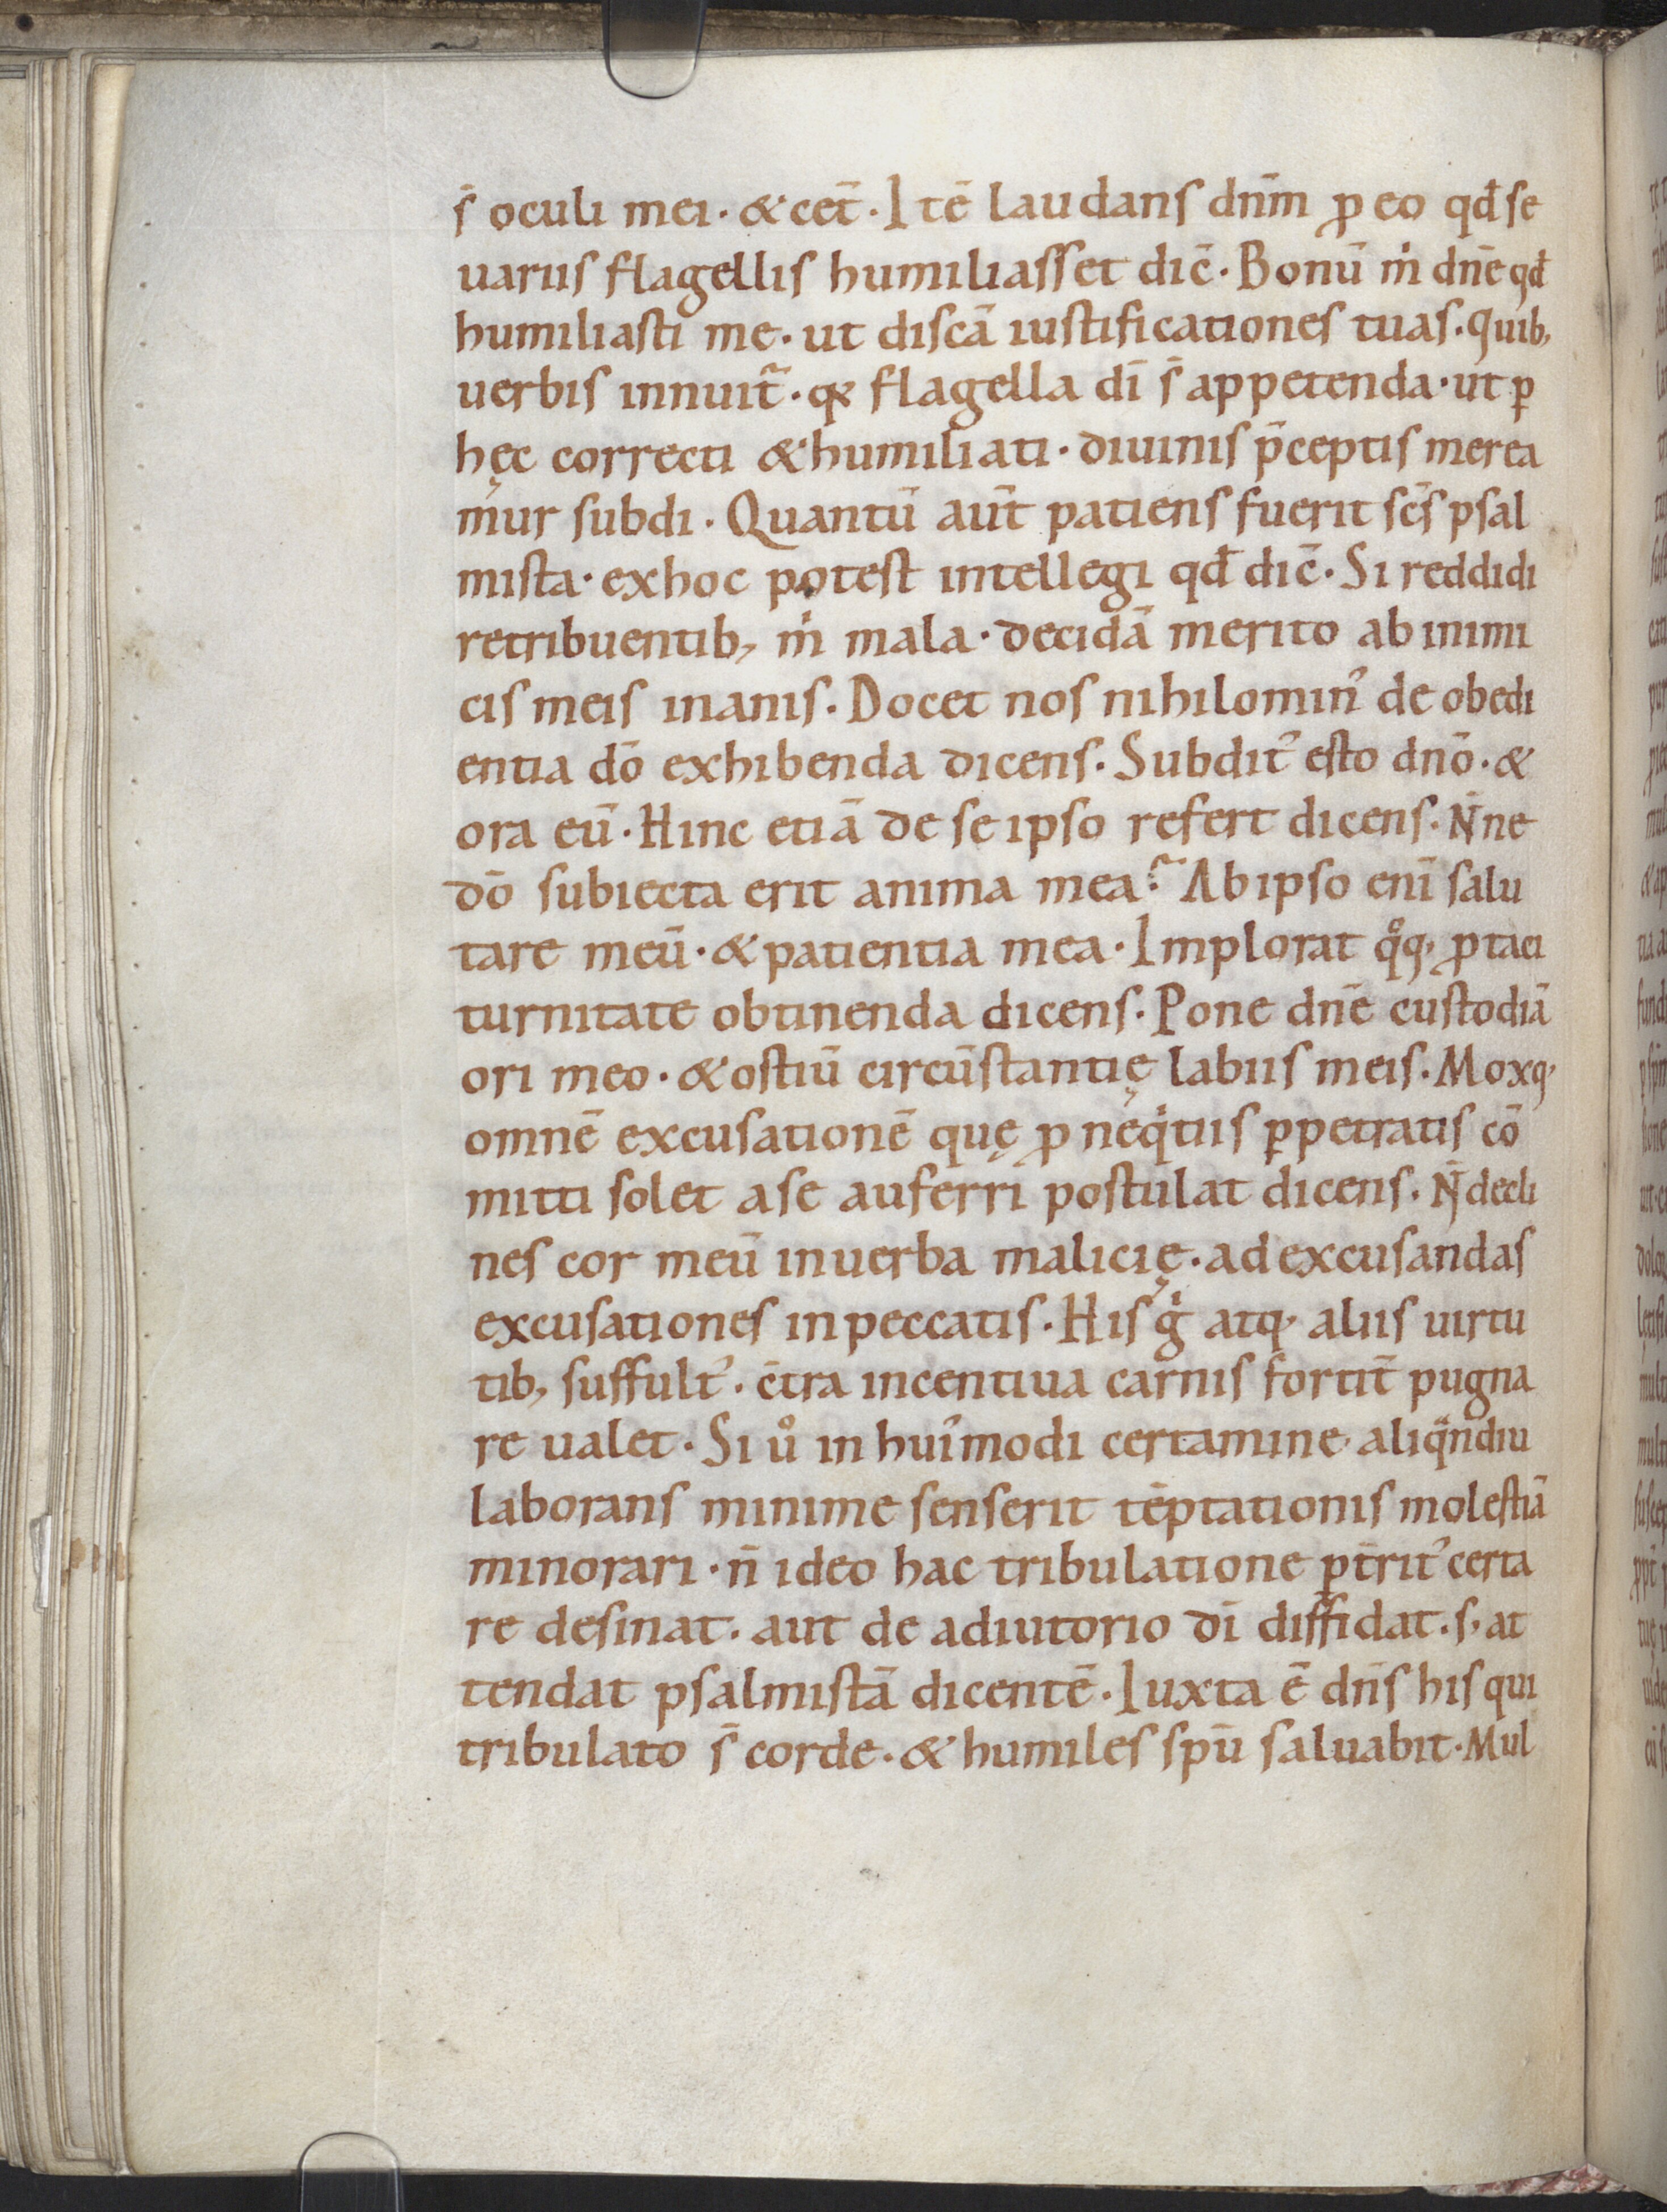 s̄ oculi mei · & cet̄ · Itē laudans dn̄m ꝓ eo qđ se
uariis flagellis humiliasset dic̄ · Bonū m̊ dn̄e qđ
humiliasti me · ut discā iustificationes tuas · Quib;
uerbis innuit · qꝫ flagella dī s̄ appetenda · ut ꝑ
hęc correcti & humiliati · diuinis p̄ceptis merea
mur subdi · Quantū aūt patiens fuerit sc̄s psal
mista · ex hoc potest intellegi qđ dic̄ · Si reddidi
retribuentib; m̊ mala · decidā merito ab inimi
cis meis inanis · Docet nos nihilomin᾿ de obedi
entia dō exhibenda dicens · Subdit᾿ esto dn̄o · &
ora eū · Hinc etiā de se ipso refert dicens · N̄ne
dō subiecta erit anima mea? Ab ipso enī salu
tare meū · & patientia mea · Implorat qͦq; ꝓ taci
turnitate obtinenda dicens · Pone dn̄e custodiā
ori meo · & ostiū circūstantię labiis meis · Moxq;
omnē excusationē quę ꝓ neqͥtiis ꝑpetratis cō
mitti solet a se auferri postulat dicens · N̄ decli
nes cor meū in uerba malicię · ad excusandas
excusationes in peccatis · His gͥ atq; aliis uirtu
tib; suffult᾿ · c̄tra incentiua carnis fortit̄ pugna
re ualet · Si uͦ in hui᾿modi certamine aliqͣndiu
laborans minime senserit tēptationis molestiā
minorari · n̄ ideo hac tribulatione ꝑt̄rit᾿ certa
re desinat · aut de adiutorio dī diffidat · s; at
tendat psalmistā dicentē · Iuxta ē dn̄s his qui
tribulato s̄ corde · & humiles spū saluabit · Mul